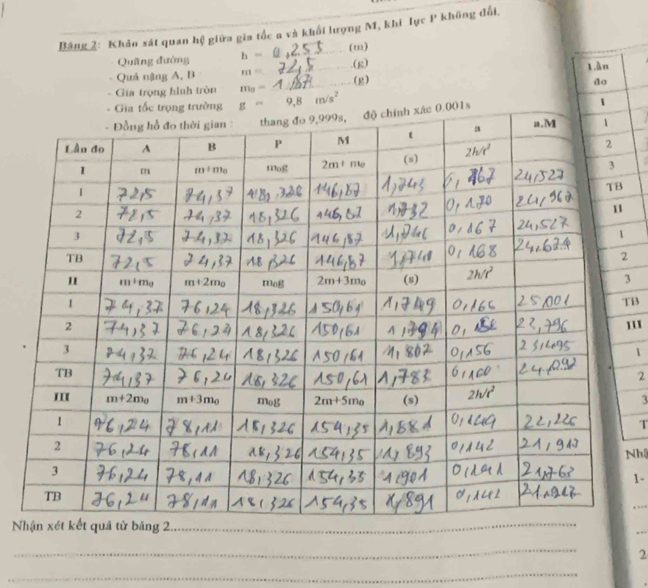 Bảng 2: Khảo sát quan hệ giữa gia tốc a và khối lượng M, khi lực P không đổi.
Quãng đường h = 0,255 (m)
- Quả nặng A, B m = 72,5 (g)
- Gia trọng hình tròn m₀ = 1,87 (g)
- Gia tốc trọng trường g = 9,8 m/s²
- Đồng hồ đo thời gian : thang đo 9,999s, độ chính xác 0.001s
Lần đo A B P M t a a.M
I m m+m₀ m₀g 2m + m₀ (s) 2h/t²
1 72,5 74,37 18,326 146,87 1,743 0,167 24,527
2 72,5 74,37 18,326 146,87 1,732 0,170 24,967
3 72,5 74,37 18,326 146,87 1,746 0,167 24,527
TB 72,5 74,37 18,326 146,87 0,168 24,674
II m+m₀ m+2m₀ m₀g 2m+3m₀ (s) 2h/t²
1 74,37 76,24 18,326 150,61 1,749 0,166 25,001
2 74,37 76,24 18,326 150,61 1,794 0,158 23,796
3 74,37 76,24 18,326 150,61 1,802 0,156 23,495
TB 74,37 76,24 18,326 150,61 1,783 0,160
III m+2m₀ m+3m₀ m₀g 2m+5m₀ (s) 2h/t²
1 76,24 78,11 18,326 154,35 1,881 0,144 22,226
2 76,24 78,11 18,326 154,35 1,893 0,142 21,917
3 76,24 78,11 18,326 154,35 1,901 0,141 21,763
TB 76,24 78,11 18,326 154,35 1,891 0,142
Nhận xét kết quả từ bảng 2
Lần
đo
I
1
2
3
TB
II
1
2
3
TB
III
1
2
3
T
Nhậ
1-
2